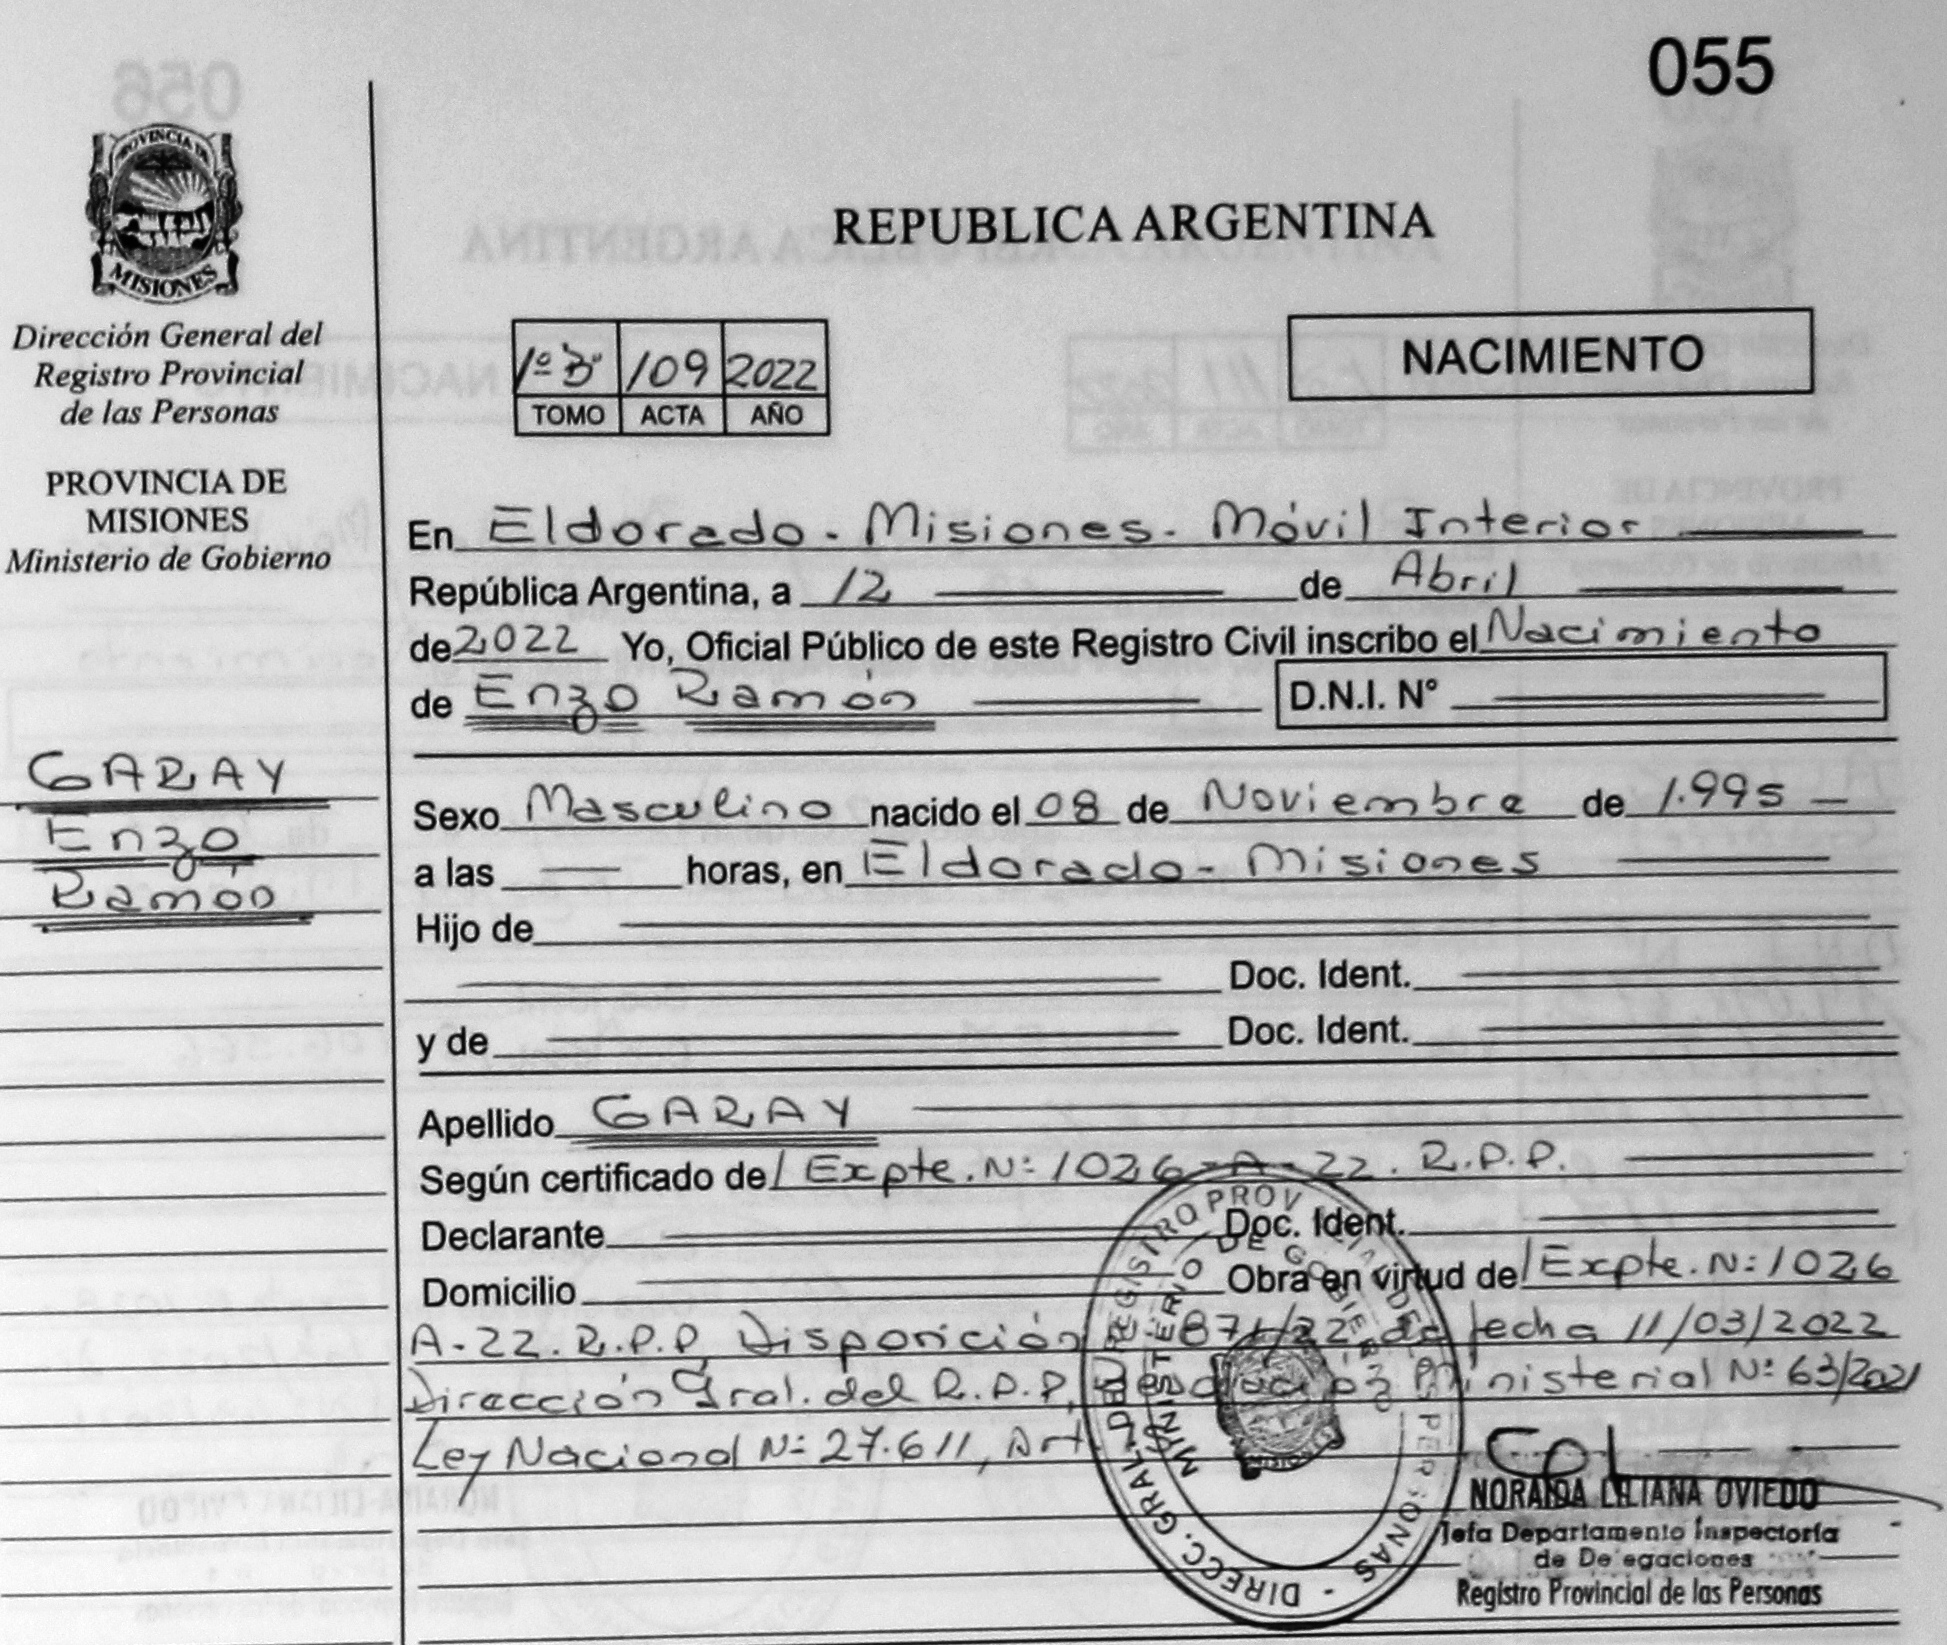 055
PROVINCIA DE
MISIONES
Dirección General del
Registro Provincial
de las Personas
PROVINCIA DE
MISIONES
Ministerio de Gobierno
GARAY
Enzo
Ramón
REPUBLICA ARGENTINA
1º 109 2022
TOMO ACTA AÑO
NACIMIENTO
En Eldorado - Misiones - Móvil Interior
República Argentina, a 12 de Abril
de 2022 Yo, Oficial Público de este Registro Civil inscribo el Nacimiento
de Enzo Ramón D.N.I. N°
Sexo Masculino nacido el 08 de Noviembre de 1.995
a las horas, en Eldorado - Misiones
Hijo de
Doc. Ident.
y de Doc. Ident.
Apellido GARAY
Según certificado de/ Expte. Nº: 1026-A-22. R.P.P.
Declarante Doc. Ident.
Domicilio Obra en virtud de/ Expte. Nº: 1026
A-22. R.P.P Disposición 871/22 de fecha 11/03/2022
Dirección Gral. del R.P.P, Resolución Ministerial Nº: 63/2021
Ley Nacional Nº 27.611, Art.
DIRECC. GRAL. DEL REGISTRO PROVINCIAL DE LAS PERSONAS -
MINISTERIO DE GOBIERNO
NORAIDA LILIANA OVIEDO
Jefa Departamento Inspectoría
de Delegaciones
Registro Provincial de las Personas